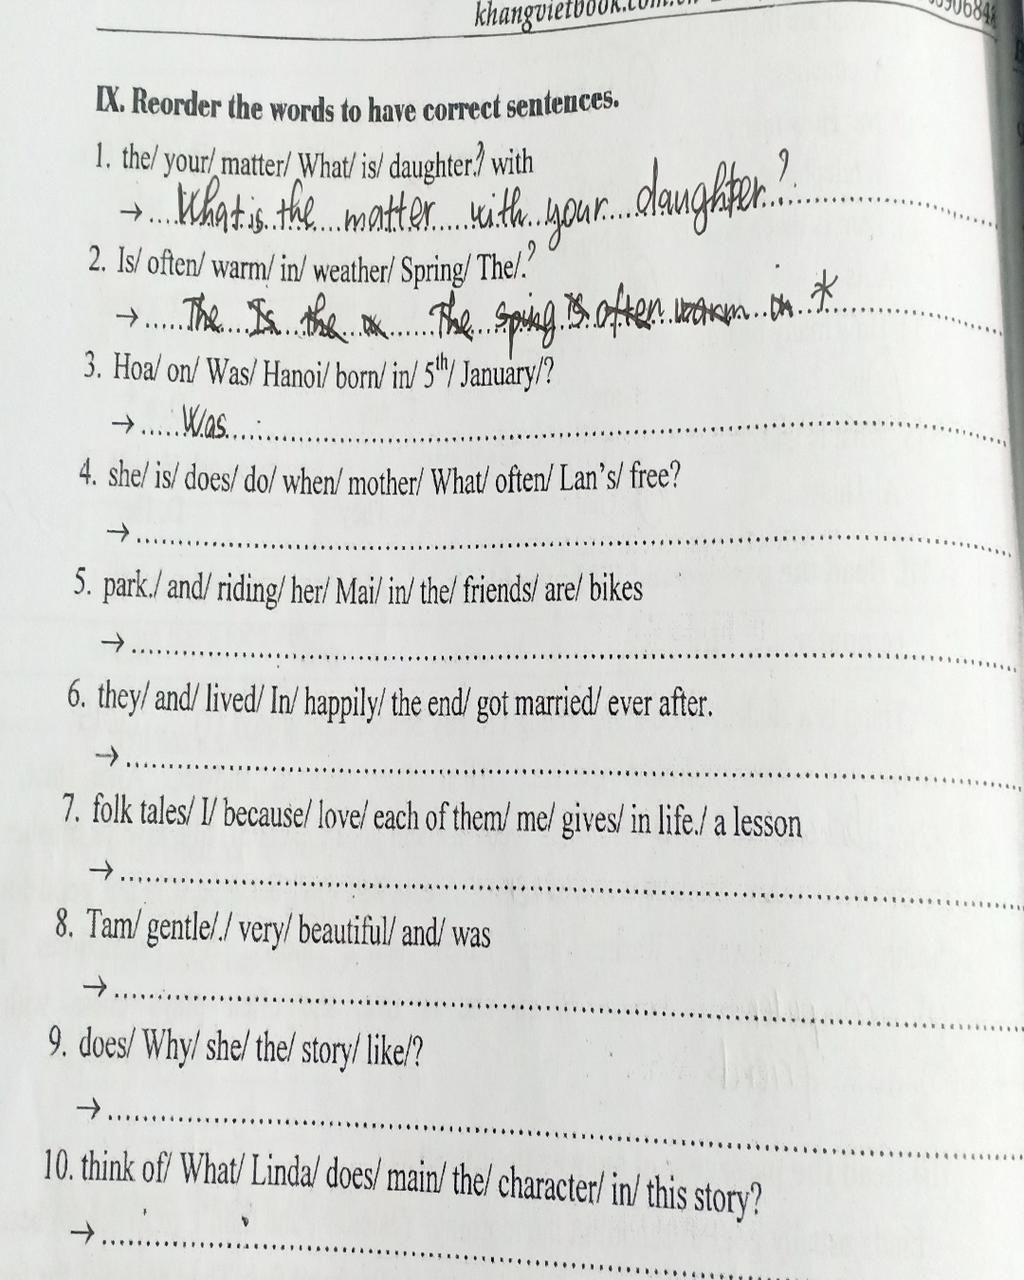 khangvietbook.com.vn
IX. Reorder the words to have correct sentences.
1. the/ your/ matter/ What/ is/ daughter.? with
→ What is the matter with your daughter?
2. Is/ often/ warm/ in/ weather/ Spring/ The/.?
→ The Is the The sping is often warm in *
3. Hoa/ on/ Was/ Hanoi/ born/ in/ 5th/ January/?
→ Was
4. she/ is/ does/ do/ when/ mother/ What/ often/ Lan's/ free?
→
5. park./ and/ riding/ her/ Mai/ in/ the/ friends/ are/ bikes
→
6. they/ and/ lived/ In/ happily/ the end/ got married/ ever after.
→
7. folk tales/ I/ because/ love/ each of them/ me/ gives/ in life./ a lesson
→
8. Tam/ gentle/./ very/ beautiful/ and/ was
→
9. does/ Why/ she/ the/ story/ like/?
→
10. think of/ What/ Linda/ does/ main/ the/ character/ in/ this story?
→